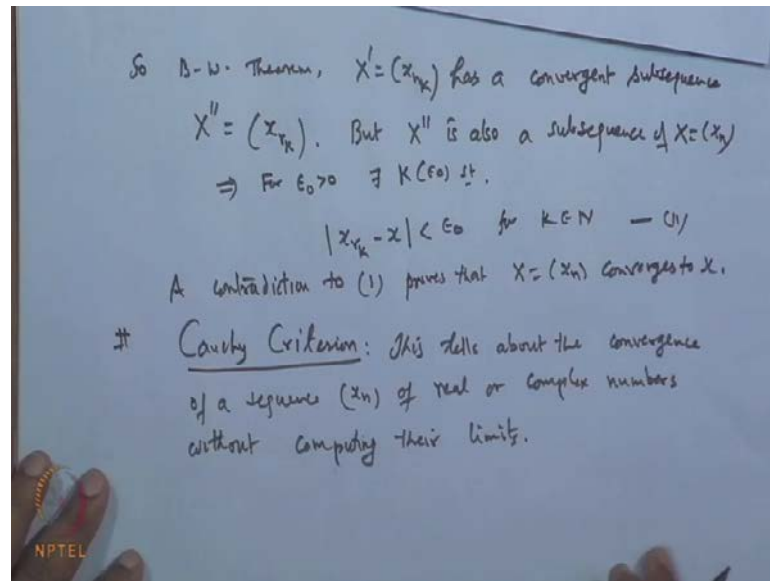 So B-W. Theorem, X' = (x_{n_k}) has a convergent subsequence
X'' = (x_{r_k}). But X'' is also a subsequence of X=(x_n)
⇒ For ε_0>0 ∃ K(ε_0) st.
|x_{r_k} - x| < ε_0 for k ∈ N — (1)
A contradiction to (1) proves that X = (x_n) converges to x.
# Cauchy Criterion: This tells about the convergence
of a sequence (x_n) of real or complex numbers
without computing their limits.
NPTEL